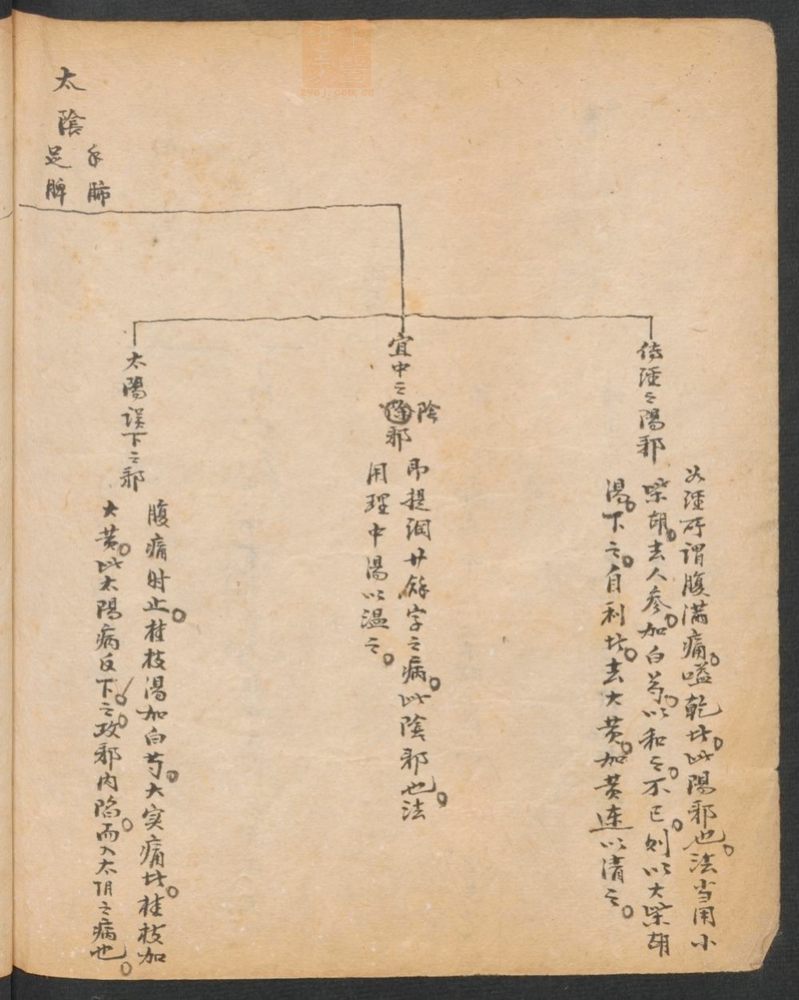 太陰
手肺
足脾
傳經之陽邪
如經所謂腹滿痛。嗌乾者。此陽邪也。法当用小
柴胡。去人参。加白芍。以和之。不已。則以大柴胡
湯。下之。自利者。去大黄。加黄連以清之。
宜中之陰邪
即提綱廿餘字之病。此陰邪也。法
用理中湯以温之。
太陽误下之邪
腹痛时止。桂枝湯加白芍。大实痛者。桂枝加
大黄。此太陽病反下之。故邪内陷。而入太阴之病也。